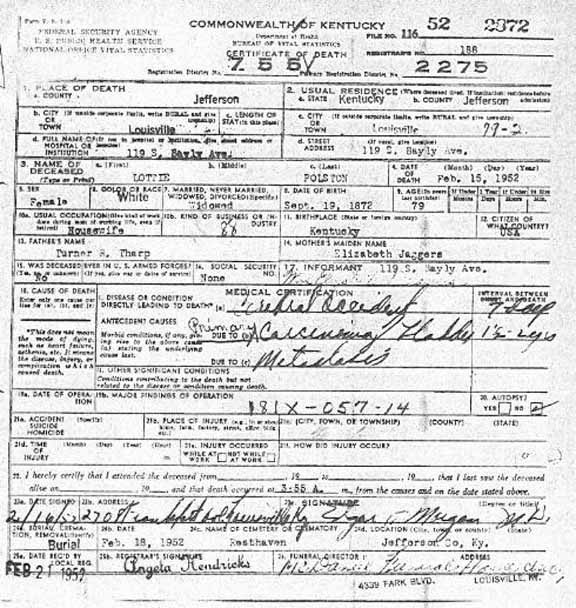 FEDERAL SECURITY AGENCY
U. S. PUBLIC HEALTH SERVICE
NATIONAL OFFICE VITAL STATISTICS
COMMONWEALTH OF KENTUCKY
Department of Health
BUREAU OF VITAL STATISTICS
CERTIFICATE OF DEATH
FILE NO. 116 52 2372
REGISTRAR'S NO. 188
Registration District No. 755 Primary Registration District No. 2275
1. PLACE OF DEATH
a. COUNTY Jefferson
2. USUAL RESIDENCE (Where deceased lived. If institution: residence before admission)
a. STATE Kentucky b. COUNTY Jefferson
b. CITY (If outside corporate limits, write RURAL and give OR TOWN Louisville
c. LENGTH OF STAY (in this place)
c. CITY (If outside corporate limits, write RURAL and give township) OR TOWN Louisville 79-2
d. FULL NAME OF (If not in hospital or institution, give street address or HOSPITAL OR INSTITUTION 119 S. Bayly Ave.
d. STREET ADDRESS (If rural, give location) 119 S. Bayly Ave.
3. NAME OF DECEASED (Type or Print)
a. (First) LOTTIE b. (Middle) c. (Last) POLSTON
4. DATE OF DEATH (Month) (Day) (Year) Feb. 15, 1952
5. SEX Female
6. COLOR OR RACE White
7. MARRIED, NEVER MARRIED, WIDOWED, DIVORCED (Specify) Widowed
8. DATE OF BIRTH Sept. 19, 1872
9. AGE (In years last birthday) 79
If Under 1 Year Months Days If Under 24 Hrs. Hours Min.
10a. USUAL OCCUPATION (Give kind of work done during most of working life, even if retired) Housewife
10b. KIND OF BUSINESS OR INDUSTRY
11. BIRTHPLACE (State or foreign country) Kentucky
12. CITIZEN OF WHAT COUNTRY? USA
13. FATHER'S NAME Turner R. Tharp
14. MOTHER'S MAIDEN NAME Elizabeth Jaggers
15. WAS DECEASED EVER IN U. S. ARMED FORCES? (Yes, no, or unknown) (If yes, give war or dates of service) No
16. SOCIAL SECURITY NO.
17. INFORMANT 119 S. Bayly Ave.
18. CAUSE OF DEATH
Enter only one cause per line for (a), (b), and (c)
*This does not mean the mode of dying, such as heart failure, asthenia, etc. It means the disease, injury, or complication which caused death.
MEDICAL CERTIFICATION
INTERVAL BETWEEN ONSET AND DEATH
I. DISEASE OR CONDITION DIRECTLY LEADING TO DEATH* (a) Cerebral Accident 7 days
ANTECEDENT CAUSES
Morbid conditions, if any, giving rise to the above cause (a) stating the underlying cause last.
Primary
DUE TO (b) Carcinoma Bladder 1½ yrs
DUE TO (c) Metastasis
II. OTHER SIGNIFICANT CONDITIONS
Conditions contributing to the death but not related to the disease or condition causing death.
19a. DATE OF OPERATION
19b. MAJOR FINDINGS OF OPERATION
181X-057-14
20. AUTOPSY? YES NO
21a. ACCIDENT SUICIDE HOMICIDE (Specify)
21b. PLACE OF INJURY (e.g., in or about home, farm, factory, street, office bldg.
21c. (CITY, TOWN, OR TOWNSHIP) (COUNTY) (STATE)
21d. TIME OF INJURY (Month) (Day) (Year) (Hour)
21e. INJURY OCCURRED WHILE AT WORK NOT WHILE AT WORK
21f. HOW DID INJURY OCCUR?
22. I hereby certify that I attended the deceased from 19 to 19 that I last saw the deceased
alive on 19 and that death occurred at 3:55 A m., from the causes and on the date stated above.
23a. DATE SIGNED
23b. ADDRESS
23c. SIGNATURE (Degree or title)
24a. BURIAL, CREMATION, REMOVAL (Specify) Burial
24b. DATE Feb. 18, 1952
24c. NAME OF CEMETERY OR CREMATORY Resthaven
24d. LOCATION (City, town, or county) (State) Jefferson Co, Ky.
25a. DATE REC'D BY LOCAL REG. FEB 21 1952
25b. REGISTRAR'S SIGNATURE Angela Hendricks
26. FUNERAL DIRECTOR ADDRESS
4339 PARK BLVD. LOUISVILLE, KY.